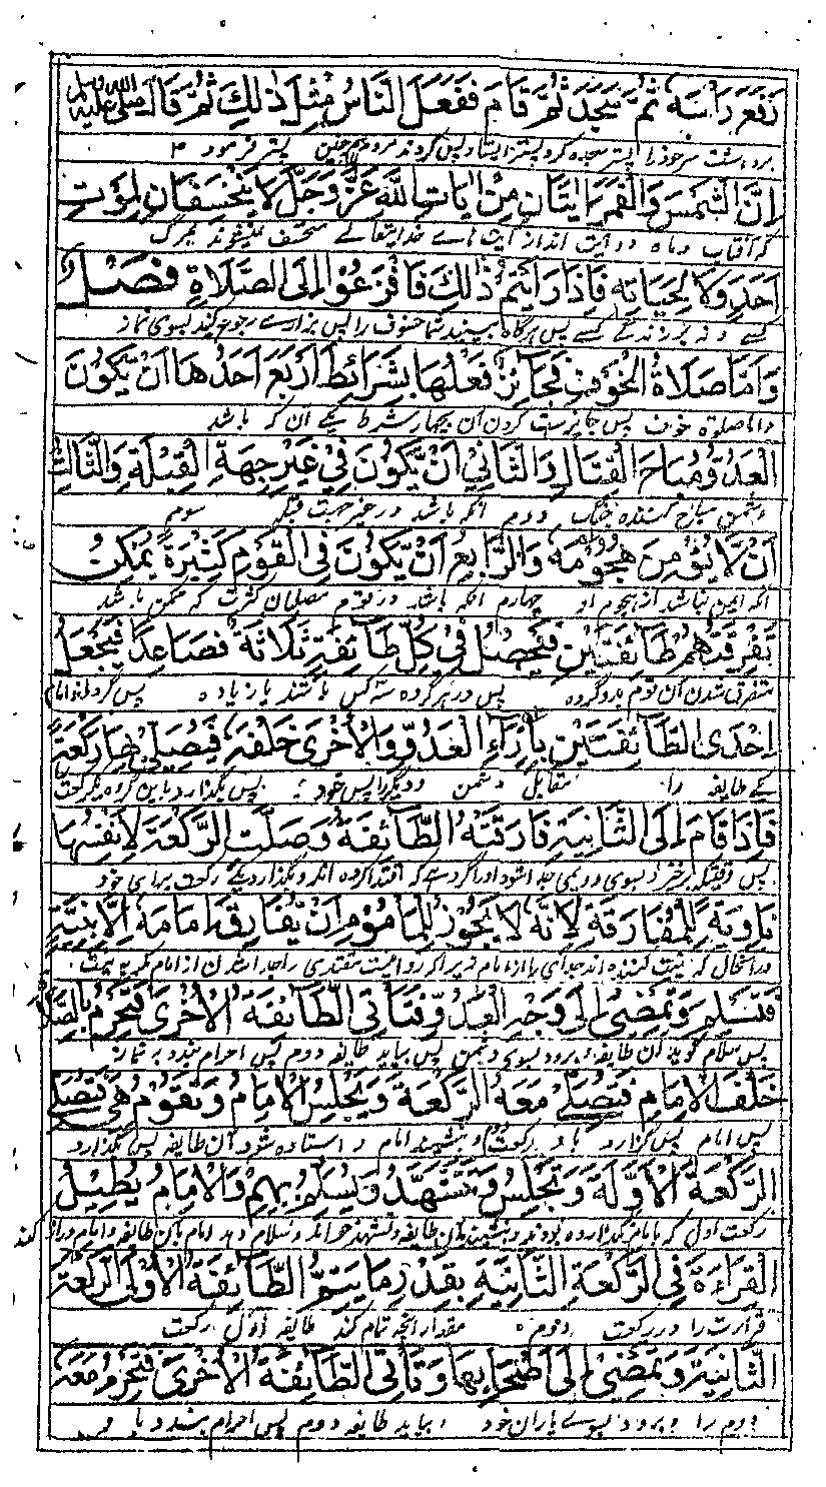 رَفَعَ رَاْسَهٗ ثُمَّ سَجَدَ ثُمَّ قَامَ فَفَعَلَ النَّاسُ مِثْلَ ذٰلِكَ ثُمَّ قَالَ صلى الله عليه وسلم
برداشت سر خود را پستر سجده کرد پستر ایستاد پس کردند مردم همچنین پستر فرمود
اِنَّ الشَّمْسَ وَالْقَمَرَ اٰيَتَانِ مِنْ اٰيَاتِ اللّٰهِ عَزَّ وَجَلَّ لَا يَنْخَسِفَانِ لِمَوْتِ
که آفتاب و ماه دو آیت اند از آیت های خدایتعالے منخسف نمیشوند بمرگ
اَحَدٍ وَلَا لِحَيَاتِهٖ فَاِذَا رَاَيْتُمْ ذٰلِكَ فَافْزَعُوْا اِلَى الصَّلَاةِ فَصْلٌ
کسے و نه بر زندگے کسے پس هرگاه ببینید شما خسوف را پس بزارے رجوع کنید بسوی نماز
وَاَمَّا صَلَاةُ الْخَوْفِ فَجَائِزٌ فِعْلُهَا بِشَرَائِطَ اَرْبَعٍ اَحَدُهَا اَنْ يَّكُوْنَ
واما صلوة خوف پس جایزست کردن آن بچهار شرط یکے آن که باشد
الْعَدُوُّ مُبَاحَ الْقِتَالِ وَالثَّانِيْ اَنْ يَّكُوْنَ فِيْ غَيْرِ جِهَةِ الْقِبْلَةِ وَالثَّالِثُ
دشمن مباح کننده جنگ دوم آنکه باشد در غیر جهت قبله سوم
اَنْ لَّا يُؤْمَنَ هُجُوْمُهٗ وَالرَّابِعُ اَنْ يَّكُوْنَ فِى الْقَوْمِ كَثِيْرَةً يُمْكِنُ
آنکه ایمن نباشد از هجوم او چهارم آنکه باشد در قوم مسلمان کثرت که ممکن باشد
تَفْرِقَتُهُمْ طَائِفَتَيْنِ فَيَحْصُلُ فِيْ كُلِّ طَائِفَةٍ ثَلَاثَةٌ فَصَاعِدًا فَيَجْعَلُ
متفرق شدن آن قوم بدو گروه پس در هر گروه سه کس باشند یا زیاده پس گرداند امام
اِحْدَى الطَّائِفَتَيْنِ بِاِزَاءِ الْعَدُوِّ وَالْاُخْرٰى خَلْفَهٗ فَيُصَلِّيْ بِهَا رَكْعَةً
یکے طایفه را مقابل دشمن و دیگر را پس خود پس بگذارد باین گروه یکرکعت
فَاِذَا قَامَ اِلَى الثَّانِيَةِ فَارَقَتْهُ الطَّائِفَةُ وَصَلَّتِ الرَّكْعَةَ لِاَنْفُسِهَا
پس وقتیکه برخیزد بسوی دوویمی جدا شود او را گروهے که اقتدا کرده اند و بگذارد یک رکعت برای خود
نَاوِيَةً لِلْمُفَارَقَةِ لِاَنَّهٗ لَا يَجُوْزُ لِلْمَأْمُوْمِ اَنْ يُّفَارِقَ اِمَامَهٗ اِلَّا بِنِيَّةٍ
در آنحال که نیت کننده اند جدای را از امام زیرا که روا نیست مقتدی را جدا شدن از امام مگر به نیت
فَتُسَلِّمُ وَتَمْضِيْ اِلٰى وَجْهِ الْعَدُوِّ فَتَأْتِى الطَّائِفَةُ الْاُخْرٰى فَتُحْرِمُ بِالصَّلَاةِ
پس سلام گوید آن طایفه و برود بسوی دشمن پس بیاید طایفه دوم پس احرام بندد به نماز
خَلْفَ الْاِمَامِ فَتُصَلِّيْ مَعَهُ الرَّكْعَةَ وَيَجْلِسُ الْاِمَامُ وَتَقُوْمُ هِيَ فَتُصَلِّي
پس امام پس گزارد با و رکعت و بنشیند امام و استاده شود آن طایفه پس بگذارد
الرَّكْعَةَ الْاَوَّلَةَ وَتَجْلِسُ وَتَتَشَهَّدُ وَيُسَلِّمُ بِهِمْ وَالْاِمَامُ يُطِيْلُ
رکعت اول که با امام نگذارده بودند و بنشیند آن طایفه و تشهد خواند و سلام دهد امام بآن طایفه و امام دراز کند
الْقِرَاءَةَ فِى الرَّكْعَةِ الثَّانِيَةِ بِقَدْرِ مَا يُتِمُّ الطَّائِفَةُ الْاُوْلَى الرَّكْعَةَ
قراءت را در رکعت دوم مقدار آنچه تمام کند طایفه اول رکعت
الثَّانِيَةَ وَتَمْضِيْ اِلٰى اَصْحَابِهَا وَتَأْتِى الطَّائِفَةُ الْاُخْرٰى فَتُحْرِمُ مَعَهٗ
دوم را و برود بسوے یاران خود و بیاید طایفه دوم پس احرام بندد با و